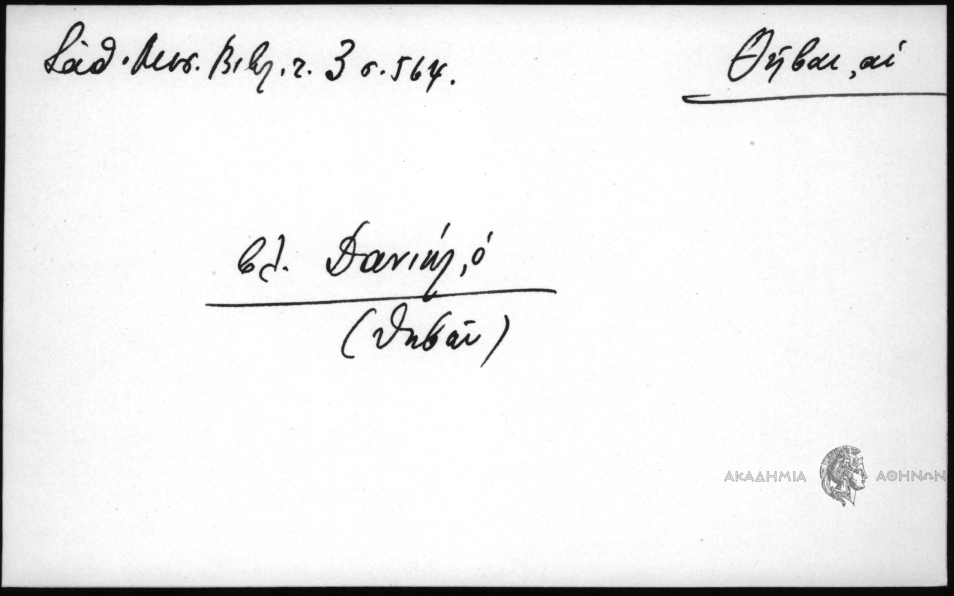 Σάθ. Μεσ. Βιβλ. τ. 3 σ. 564.
Θῆβαι, αἱ
βλ. Δανιήλ, ὁ
(Θηβῶν)
ΑΚΑΔΗΜΙΑ ΑΘΗΝΩΝ